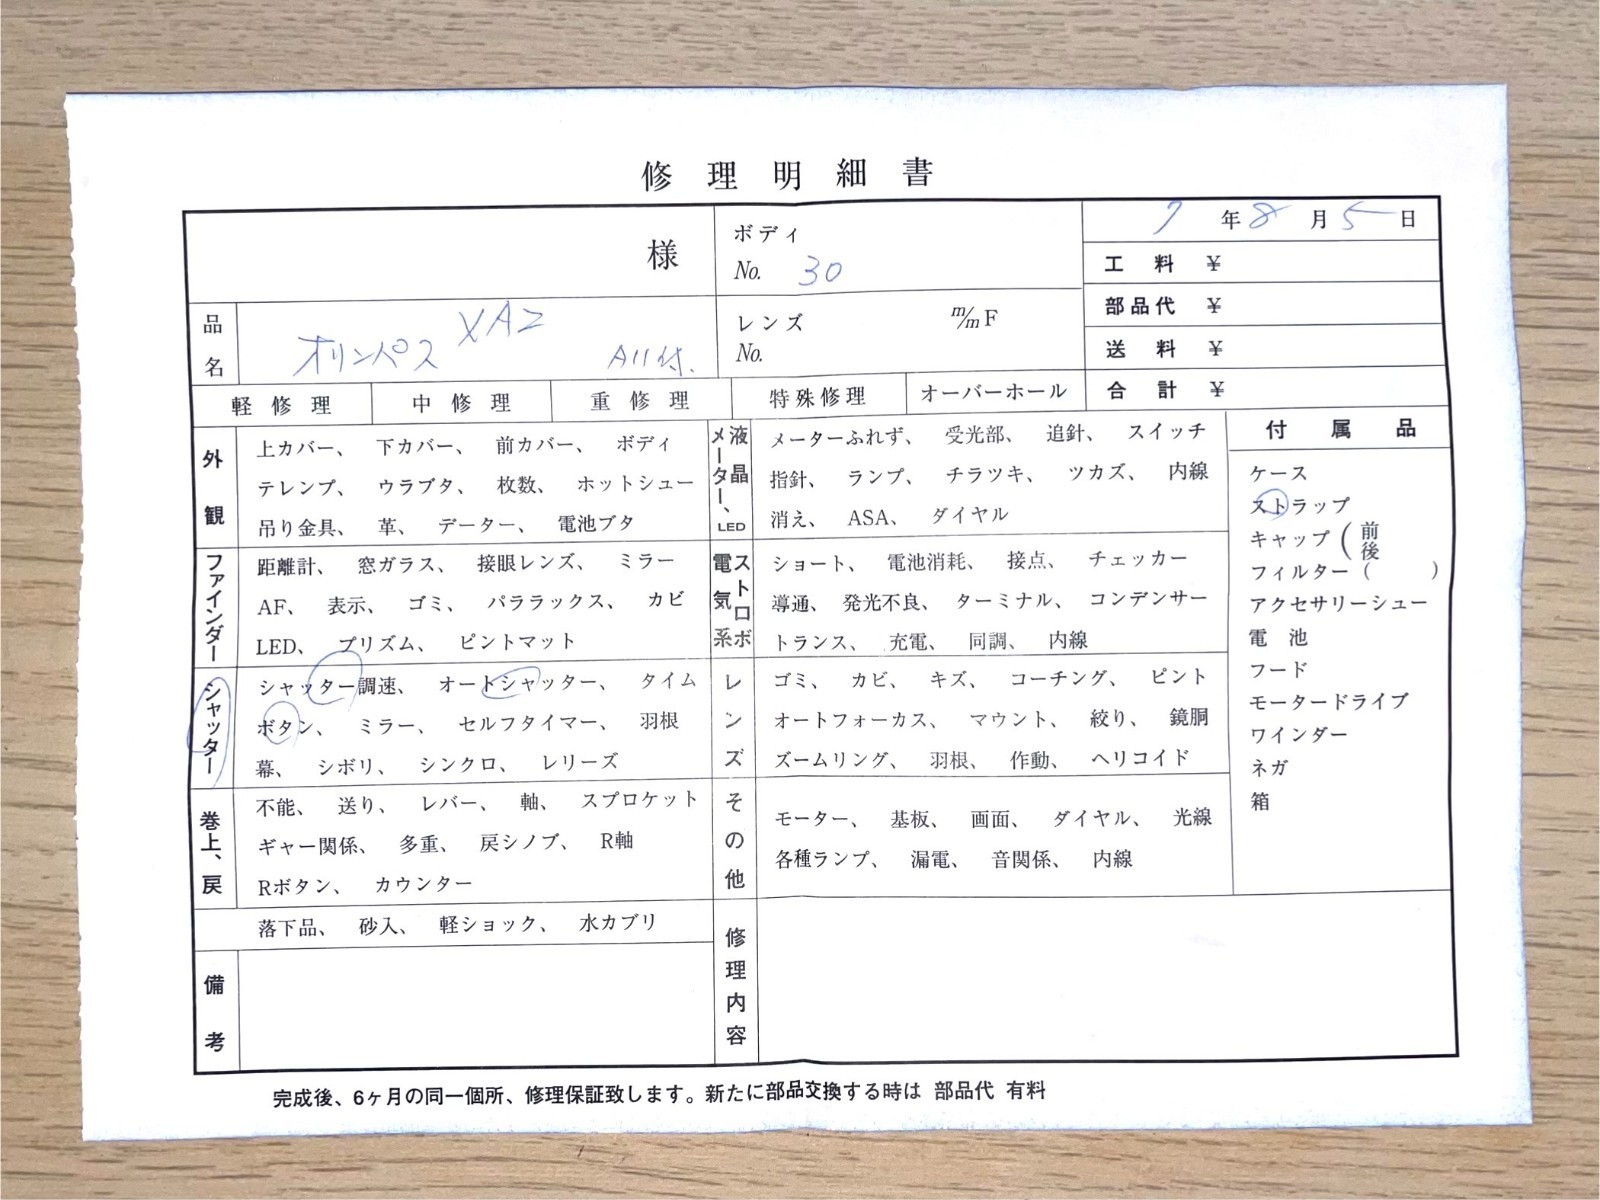 修理明細書
様
ボディ
No. 30
7年8月5日
工料 ¥
部品代 ¥
送料 ¥
合計 ¥
品名
XA2
オリンパス A11付.
レンズ m/m F
No.
軽修理 中修理 重修理 特殊修理 オーバーホール
外観
上カバー、 下カバー、 前カバー、 ボディ
テレンプ、 ウラブタ、 枚数、 ホットシュー
吊り金具、 革、 データー、 電池ブタ
液晶メーター、LED
メーターふれず、 受光部、 追針、 スイッチ
指針、 ランプ、 チラツキ、 ツカズ、 内線
消え、 ASA、 ダイヤル
付属品
ケース
ストラップ
キャップ(前後
フィルター( )
アクセサリーシュー
電池
フード
モータードライブ
ワインダー
ネガ
箱
ファインダー
距離計、 窓ガラス、 接眼レンズ、 ミラー
AF、 表示、 ゴミ、 パララックス、 カビ
LED、 プリズム、 ピントマット
ストロボ電気系
ショート、 電池消耗、 接点、 チェッカー
導通、 発光不良、 ターミナル、 コンデンサー
トランス、 充電、 同調、 内線
シャッター
シャッター調速、 オートシャッター、 タイム
ボタン、 ミラー、 セルフタイマー、 羽根
幕、 シボリ、 シンクロ、 レリーズ
レンズ
ゴミ、 カビ、 キズ、 コーチング、 ピント
オートフォーカス、 マウント、 絞り、 鏡胴
ズームリング、 羽根、 作動、 ヘリコイド
巻上、戻
不能、 送り、 レバー、 軸、 スプロケット
ギャー関係、 多重、 戻シノブ、 R軸
Rボタン、 カウンター
その他
モーター、 基板、 画面、 ダイヤル、 光線
各種ランプ、 漏電、 音関係、 内線
落下品、 砂入、 軽ショック、 水カブリ
備考
修理内容
完成後、6ヶ月の同一個所、修理保証致します。新たに部品交換する時は 部品代 有料